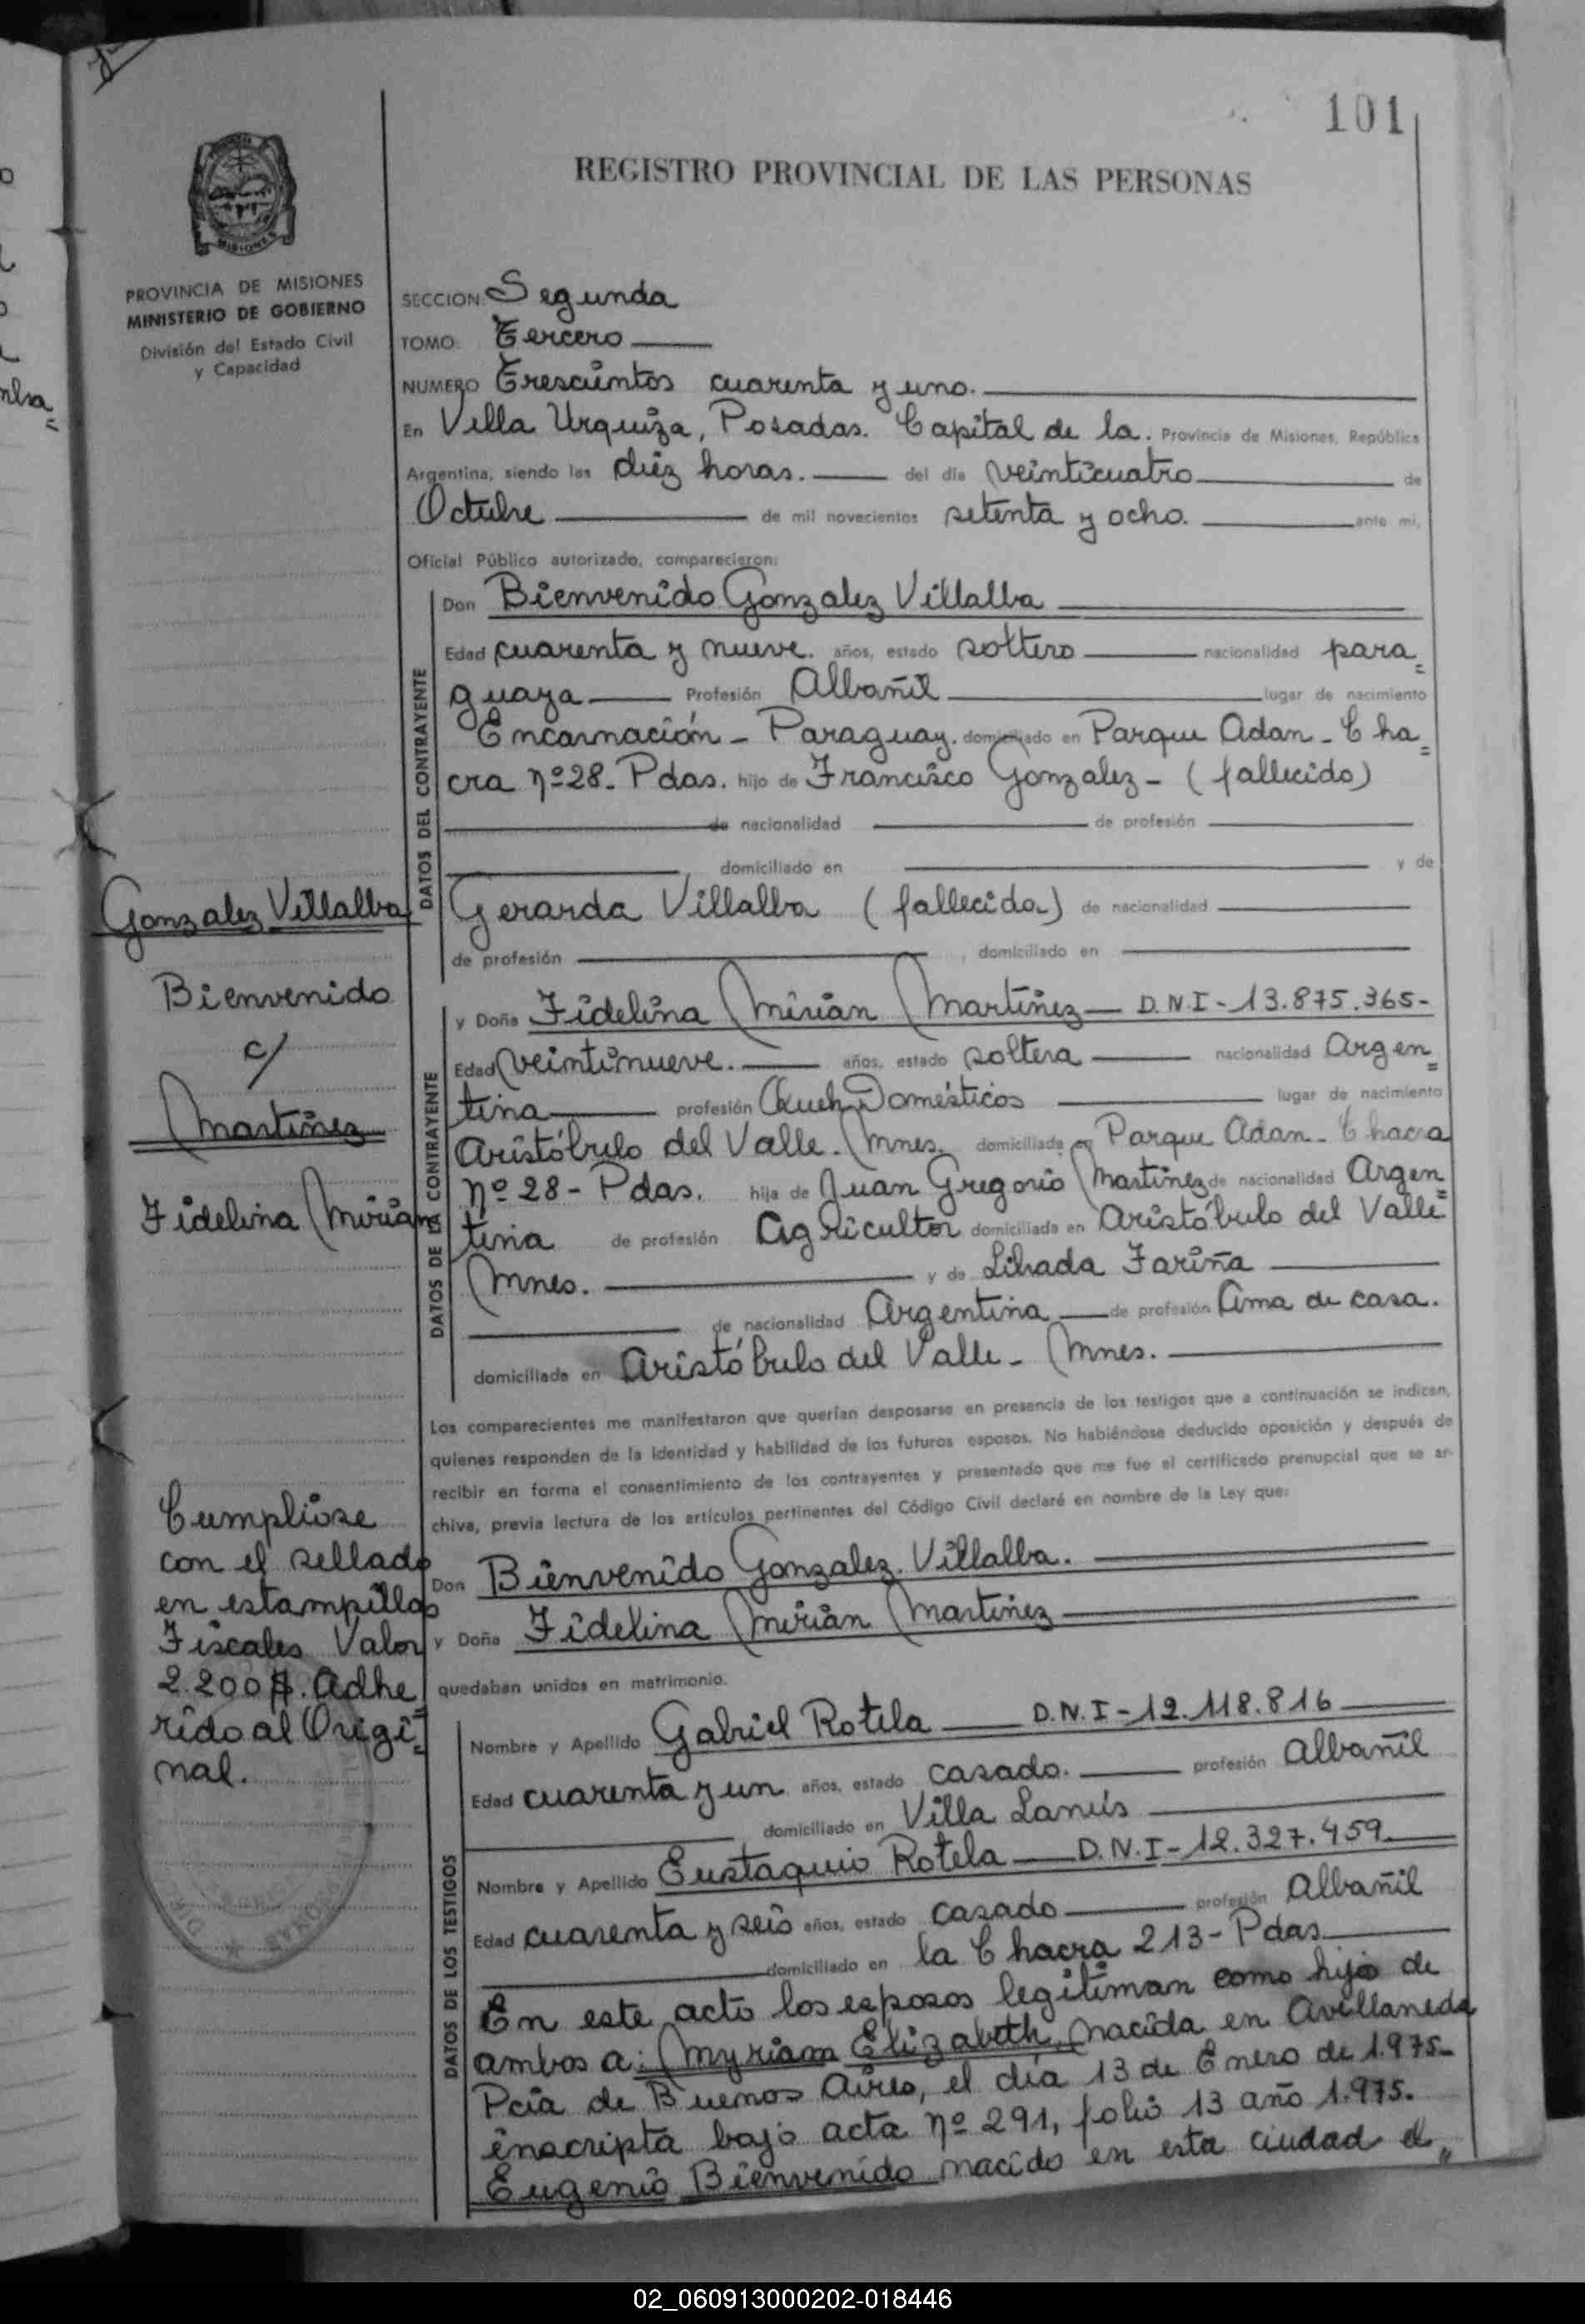 101
REGISTRO PROVINCIAL DE LAS PERSONAS
MISIONES
PROVINCIA DE MISIONES
MINISTERIO DE GOBIERNO
División del Estado Civil
y Capacidad
SECCION: Segunda
TOMO: Tercero
NUMERO Trescientos cuarenta y uno.
En Villa Urquiza, Posadas. Capital de la. Provincia de Misiones, República
Argentina, siendo las diéz horas. del día veinticuatro de
Octubre de mil novecientos setenta y ocho. ante mí,
Oficial Público autorizado, comparecieron:
DATOS DEL CONTRAYENTE
Don Bienvenido Gonzalez Villalba
Edad cuarenta y nueve. años, estado soltero nacionalidad para=
guaya Profesión Albañil lugar de nacimiento
Encarnación - Paraguay. domiciliado en Parque Adan - Cha=
cra nº 28 - Pdas. hijo de Francisco Gonzalez - (fallecido)
de nacionalidad de profesión
domiciliado en y de
Gerarda Villalba (fallecida) de nacionalidad
de profesión , domiciliado en
Gonzalez Villalba
Bienvenido
c/
Martinez
Fidelina Mirian
DATOS DE LA CONTRAYENTE
y Doña Fidelina Mirian Martinez - D.N.I - 13.875.365-
Edad veintinueve. años, estado soltera nacionalidad Argen=
tina profesión Queh. Domésticos lugar de nacimiento
Aristóbulo del Valle. Mnes. domiciliada en Parque Adan - Chacra
nº 28 - Pdas. hija de Juan Gregorio Martinez de nacionalidad Argen=
tina de profesión Agricultor domiciliada en Aristóbulo del Valle
Mnes. y de Librada Fariña
de nacionalidad Argentina de profesión Ama de casa.
domiciliada en Aristóbulo del Valle - Mnes.
Los comparecientes me manifestaron que querían desposarse en presencia de los testigos que a continuación se indican,
quienes responden de la identidad y habilidad de los futuros esposos. No habiéndose deducido oposición y después de
recibir en forma el consentimiento de los contrayentes y presentado que me fue el certificado prenupcial que se ar-
chiva, previa lectura de los artículos pertinentes del Código Civil declaré en nombre de la Ley que:
Don Bienvenido Gonzalez Villalba.
y Doña Fidelina Mirian Martinez
quedaban unidos en matrimonio.
Cumplióse
con el sellado
en estampillas
Fiscales Valor
2.200 $. Adhe
rido al Origi=
nal.
DATOS DE LOS TESTIGOS
Nombre y Apellido Gabriel Rotela D.N.I - 12.118.816
Edad cuarenta y un años, estado casado. profesión Albañil
domiciliado en Villa Lanús
Nombre y Apellido Eustaquio Rotela D.N.I - 12.327.459
Edad cuarenta y seis años, estado casado profesión Albañil
domiciliado en la Chacra 213 - Pdas
En este acto los esposos legitiman como hijo de
ambos a: Myriam Elizabeth, nacida en Avellaneda
Pcia de Buenos Aires, el día 13 de Enero de 1.975-
inscripta bajo acta nº 291, folio 13 año 1.975.
Eugenio Bienvenido nacido en esta ciudad el "
02_060913000202-018446